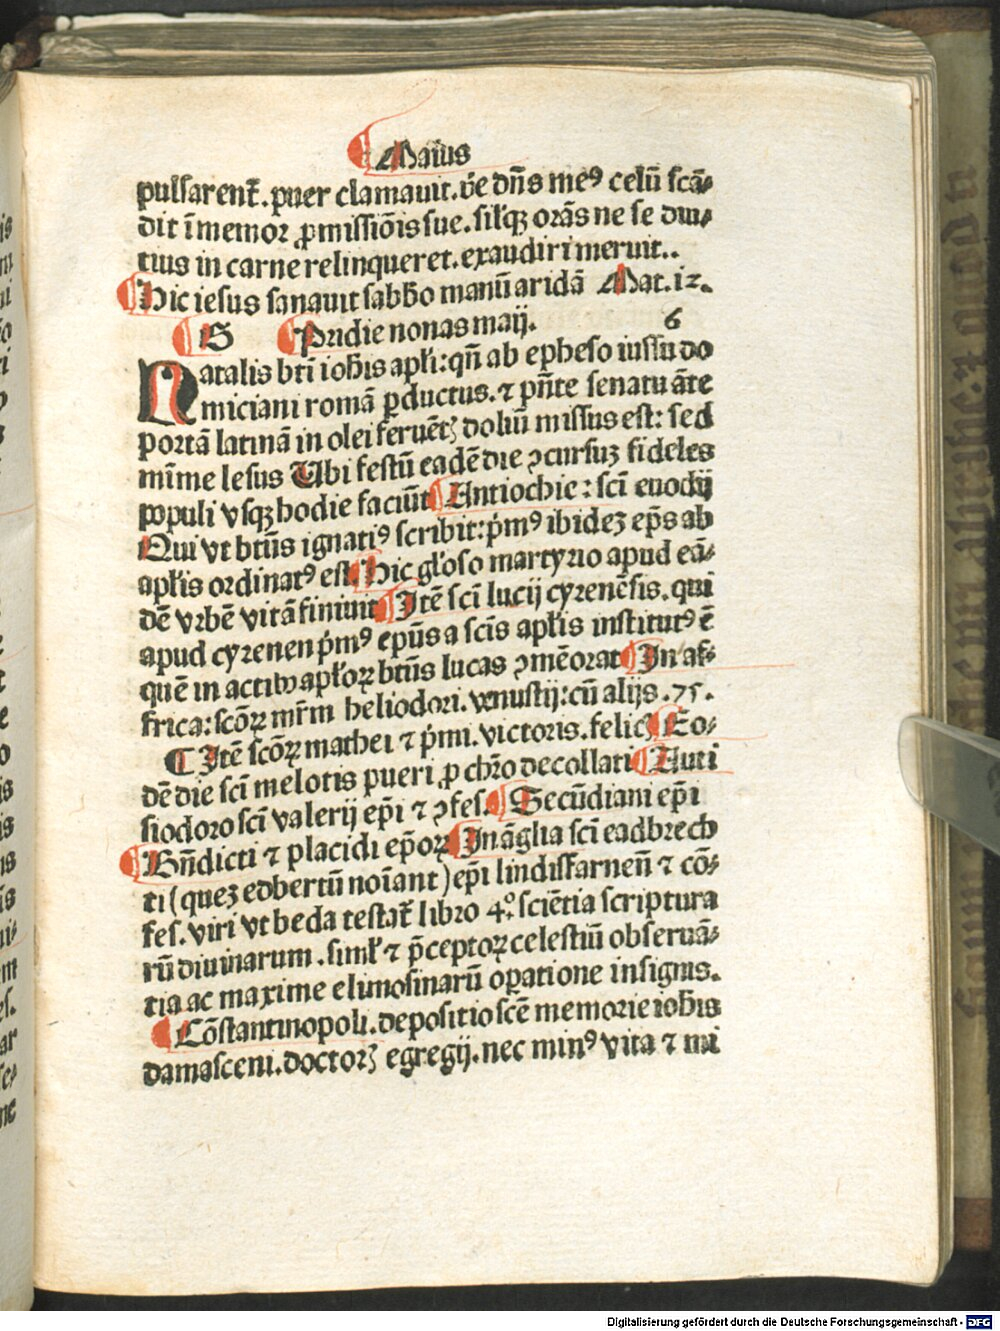 Maius
pulsarent᷑. puer clamauit. vn̄e dn̄s meꝰ celū scā⸗
dit īmemor ꝓmissiōis sue. sil'qꝫ orās ne se diu⸗
tius in carne relinqueret. exaudiri meruit..
Hic iesus sanauit sabb̄o manū aridā Mat. 12.
G Pridie nonas maij. 6
Natalis bt̄i ioh̄is apl̄i: qn̄ ab epheso iussu do
miciani romā ꝑductus. ⁊ pn̄te senatu āte
portā latinā in olei feruēt̄ꝫ doliū missus est: sed
mīme lesus Ubi festū eadē die ꝯcursuꝫ fideles
populi vsqꝫ hodie faciūt Antiochie: sc̄i euodij
Qui vt bt̄us ignatiꝰ scribit: pͥmꝰ ibideꝫ ep̄s ab
apl̄is ordinatꝰ est. Hic gl'oso martyrio apud eā⸗
dē vrbē vitā finiuit Itē sc̄i lucij cyrenēsis. qui
apud cyrenen pͥmꝰ ep̄us a sc̄is apl̄is institutꝰ ē
quē in actibꝫ apl̄oꝝ bt̄us lucas ꝯmēorat In af⸗
frica: sc̄oꝝ mr̄m heliodori. venustij: cū alijs. 75.
¶ Itē sc̄oꝝ mathei ⁊ pͥmi. victoris. felicꝫ Eo⸗
dē die sc̄i melotis pueri ꝓ chr̄o decollati Auti
siodoro sc̄i valerij ep̄i ⁊ ꝯfes. Secūdiani ep̄i
Bn̄dicti ⁊ placidi ep̄oꝝ In āglia sc̄i eadbrech
ti (queꝫ edbertū noīant) ep̄i lindisfarnen̄ ⁊ cō⸗
fes. viri vt beda testat᷑ libro 4.º sciētia scriptura
rū diuinarum. siml' ⁊ p̄ceptoꝝ celestiū obseruā⸗
tia ac maxime elimosinarū oꝑatione insignis.
Cōstantinopoli. depositio scē memorie ioh̄is
damasceni. doctorꝫ egregij. nec minꝰ vita ⁊ mi
Digitalisierung gefördert durch die Deutsche Forschungsgemeinschaft - DFG